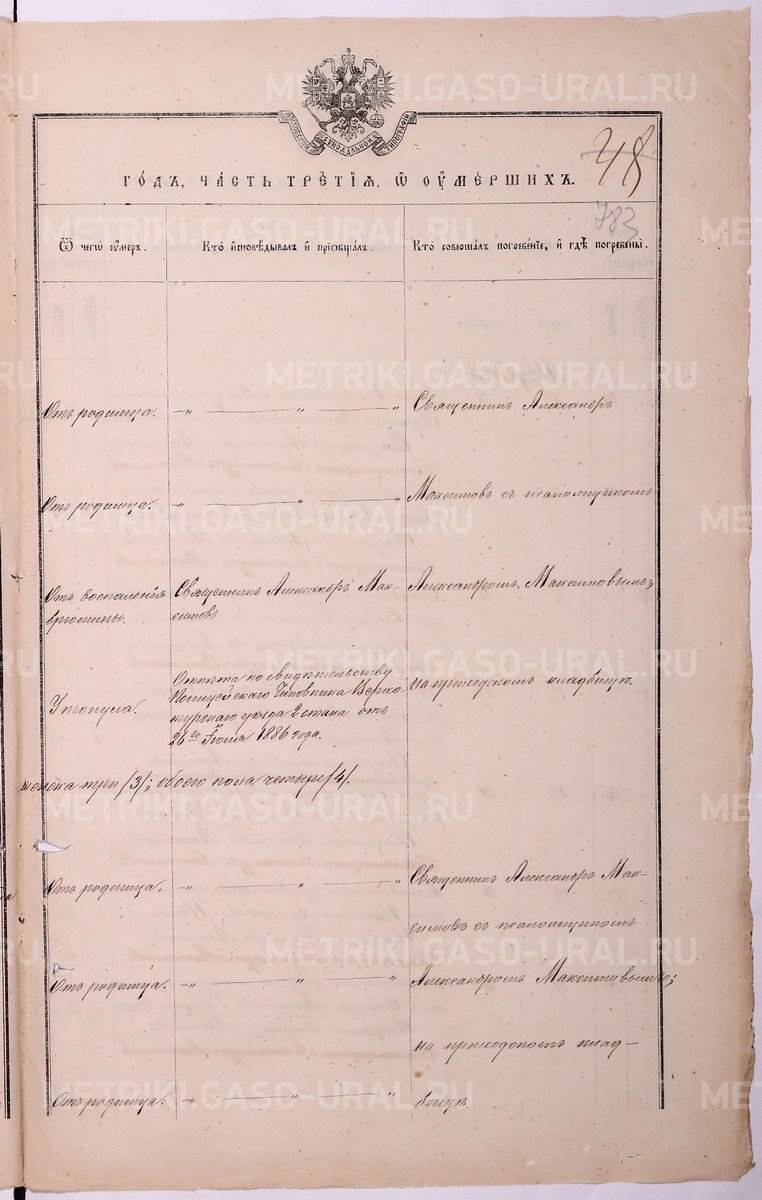 МОСКОВСКОЙ СѴНОДАЛЬНОЙ ТИПОГРАФІИ
48
783
ГОДЪ, ЧАСТЬ ТРЕТІЯ, Ѿ ОУМЕРШИХЪ.
Ѿ чегѡ оумеръ.
Кто исповѣдывалъ и пріобщалъ.
Кто совершалъ погребеніе, и гдѣ погребены.
Отъ родимца.
Священникъ Александръ
Отъ родимца.
Максимовъ съ псаломщикомъ
Отъ воспаленія брюшины.
Священникъ Александръ Мак-
симовъ
Александромъ Максимовымъ;
Утонула.
Отпѣта по свидѣтельству
Полицейскаго Чиновника Верхо-
турскаго уѣзда 2 стана отъ
26го Іюля 1886 года.
на приходскомъ кладбищѣ.
женска три /3/; обоего пола четыре /4/.
Отъ родимца.
Священникъ Александръ Мак-
симовъ съ псаломщикомъ
Отъ родимца.
Александромъ Максимовымъ;
на приходскомъ клад-
Отъ родимца.
бищѣ
METRIKI.GASO-URAL.RU